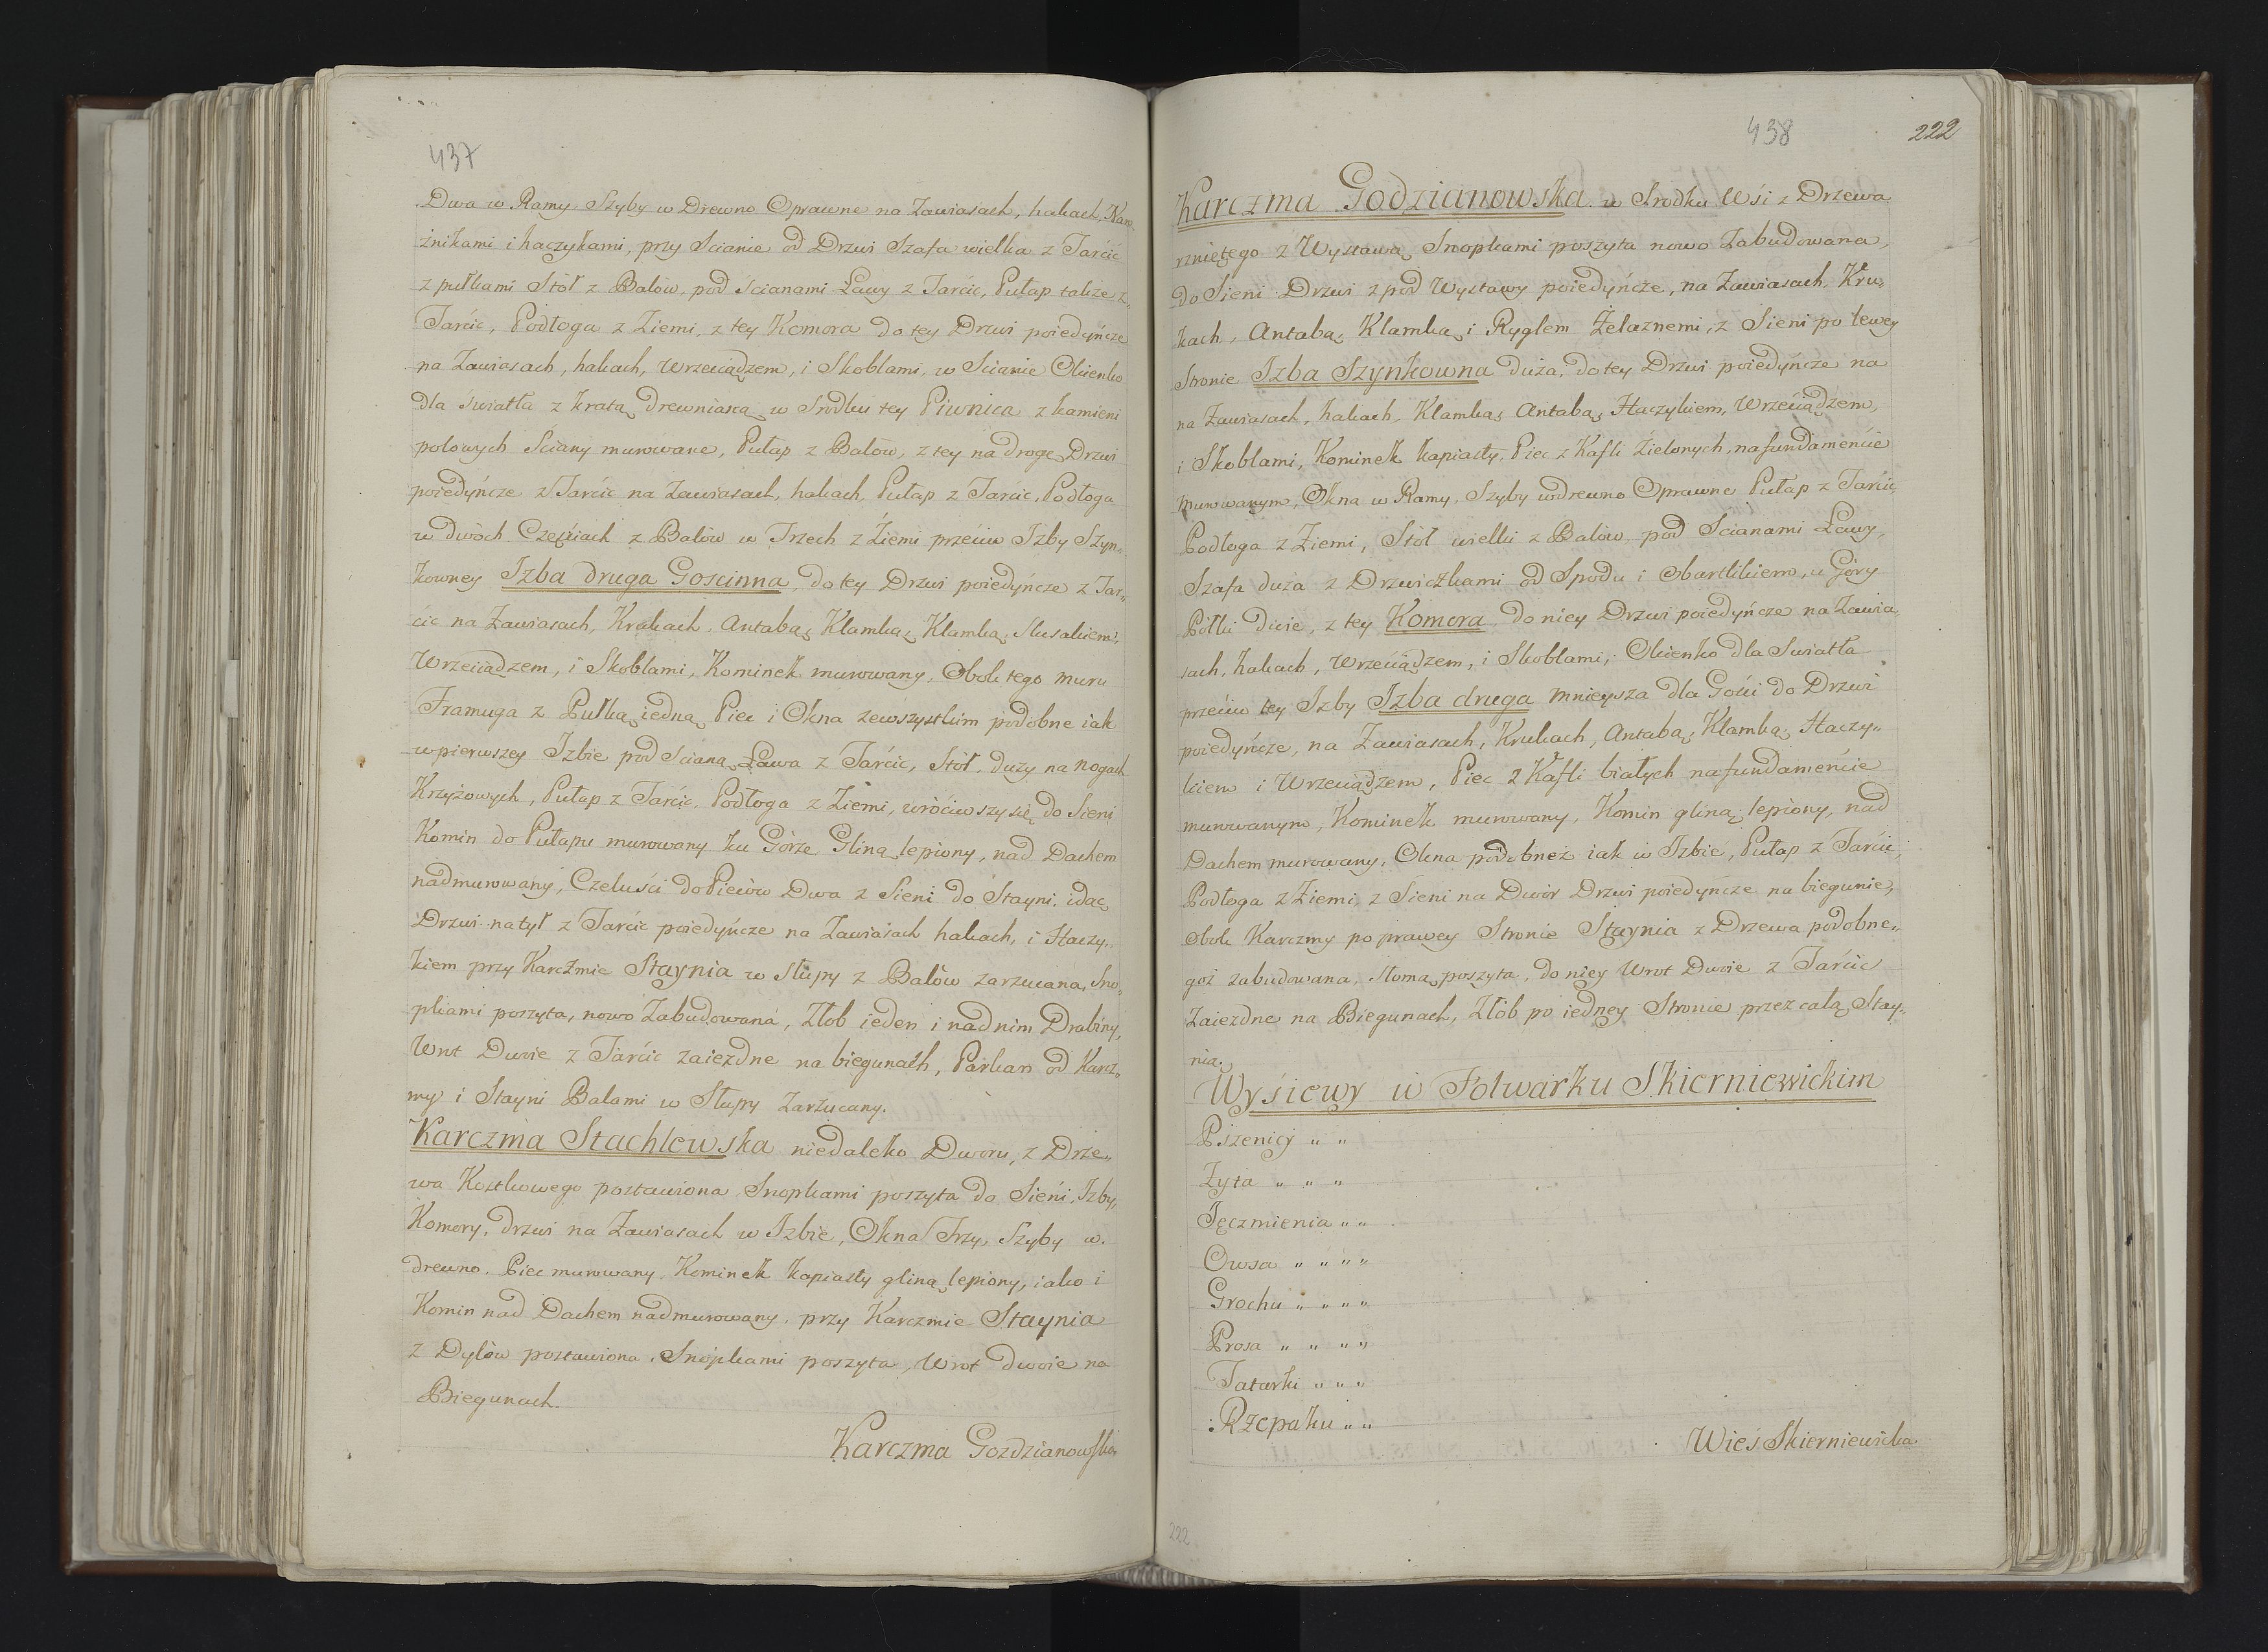 437
Dwa w Ramy Szyby w Drewno Oprawne na Zawiasach, hakach, Nar„
żnikami i haczykami, przy Scianie od Drzwi Szafa wielka z Tarcic
z pułkami Stół z Balów, pod ścianami Ławy z Tarcic, Pułap także z„
Tarcic, Podłoga z Ziemi, z tey Komora do tey Drzwi poiedyńcze
na Zawiasach, hakach, wrzeciądzem, i Skoblami, w Scianie Okienko
dla światła z kratą drewnianą w Srodku tey Piwnica z kamieni
polowych Sciany murowane, Pułap z Balów, z tey na drogę Drzwi
poiedyńcze z Tarcic na Zawiasach, hakach, Pułap z Tarcic, Podłoga
w dwóch Częściach z Balów w Trzech z Ziemi przeciw Izby Szyn„
kowney Izba druga Goscinna do tey Drzwi poiedyńcze z Tar„
cic na Zawiasach, Krukach, Antabą, Klamką, Klamką, Slusakiem,
Wrzeciądzem, i Skoblami, Kominek murowany, Obok tego muru
Framuga z Pułką iedną Piec i Okna zewszystkim podobne iak
w pierwszey Izbie pod Scianą Ława z Tarcic, Stół duży na nogach
Krzyżowych, Pułap z Tarcic, Podłoga z Ziemi, wróciwszy się do Sieni
Komin do Pułapu murowany ku Górze Gliną lepiony, nad Dachem
nadmurowany, Czeluści do Pieców Dwa z Sieni do Stayni idąc
Drzwi na tył z Tarcic poiedyńcze na Zawiasach hakach, i Haczy„
kiem przy Karczmie Staynia w Słupy z Balów zarzucana, Sno„
pkami poszyta, nowo Zabudowana, Złob ieden i nad nim Drabiny,
Wrot Dwoie z Tarcic zaiezdne na biegunach, Parkan od Karcz„
my i Stayni Balami w Słupy Zarzucany.
Karczma Stachlewska niedaleko Dworu, z Drze„
wa Kostkowego postawiona Snopkami poszyta do Sieni, Izby,
Komory, drzwi na Zawiasach w Izbie, Okna Trzy, Szyby w
drewno. Piec murowany Kominek kapiasty gliną lepiony, iako i
Komin nad Dachem nadmurowany, przy Karczmie Staynia
z Dylów postawiona, Snopkami poszyta, Wrot dwoie na
Biegunach.
Karczma Gozdzianowska
438
222
Karczma Godzianowska w Srodku Wsi z Drzewa
rzniętego z Wystawą Snopkami poszyta nowo Zabudowana,
do Sieni Drzwi z pod Wystawy poiedyńcze, na Zawiasach, Kru„
kach, Antabą, Klamką i Ryglem Żelaznemi, z Sieni po lewey
Stronie Izba Szynkowna duża, do tey Drzwi poiedyńcze na
na Zawiasach, hakach, Klamką, Antabą, Haczykiem, Wrzeciądzem,
i Skoblami, Kominek kapiasty, Piec z Kafli Zielonych, na fundamencie
murowanym, Okna w Ramy, Szyby w drewno Oprawne Pułap z Tarcic
Podłoga z Ziemi, Stół wielki z Balów, pod Scianami Ławy,
Szafa duża z Drzwiczkami od Spodu i Obartlikiem, u Góry
Półki dwie, z tey Komora do niey Drzwi poiedyńcze na Zawia„
sach, hakach, wrzeciądzem, i Skoblami, Okienko dla Swiatła
przeciw tey Izby Izba druga mnieysza dla Gości do Drzwi
poiedyńcze, na Zawiasach, Krukach, Antabą, Klamką, Haczy„
kiem i Wrzeciądzem, Piec z Kafli białych na fundamencie
murowanym, Kominek murowany, Komin gliną lepiony, nad
Dachem murowany, Okna podobneż iak w Izbie, Pułap z Tarcic,
Podłoga z Ziemi, z Sieni na Dwór Drzwi poiedyńcze na biegunie,
Obok Karczmy po prawey Stronie Staynia z Drzewa podobne„
goż zabudowana, Słomą poszyta, do niey Wrot Dwoie z Tarcic
Zaiezdne na Biegunach, Złób po iedney Stronie przez całą Stay„
nią.
Wysiewy w Folwarku Skierniewickim
Pszenicy „ „
Żyta „ „ „
Jęczmienia „ „
Owsa „ „ „ „
Grochu „ „ „ „
Prosa „ „ „ „
Tatarki „ „ „
Rzepaku „ „
Wieś Skierniewicka
222